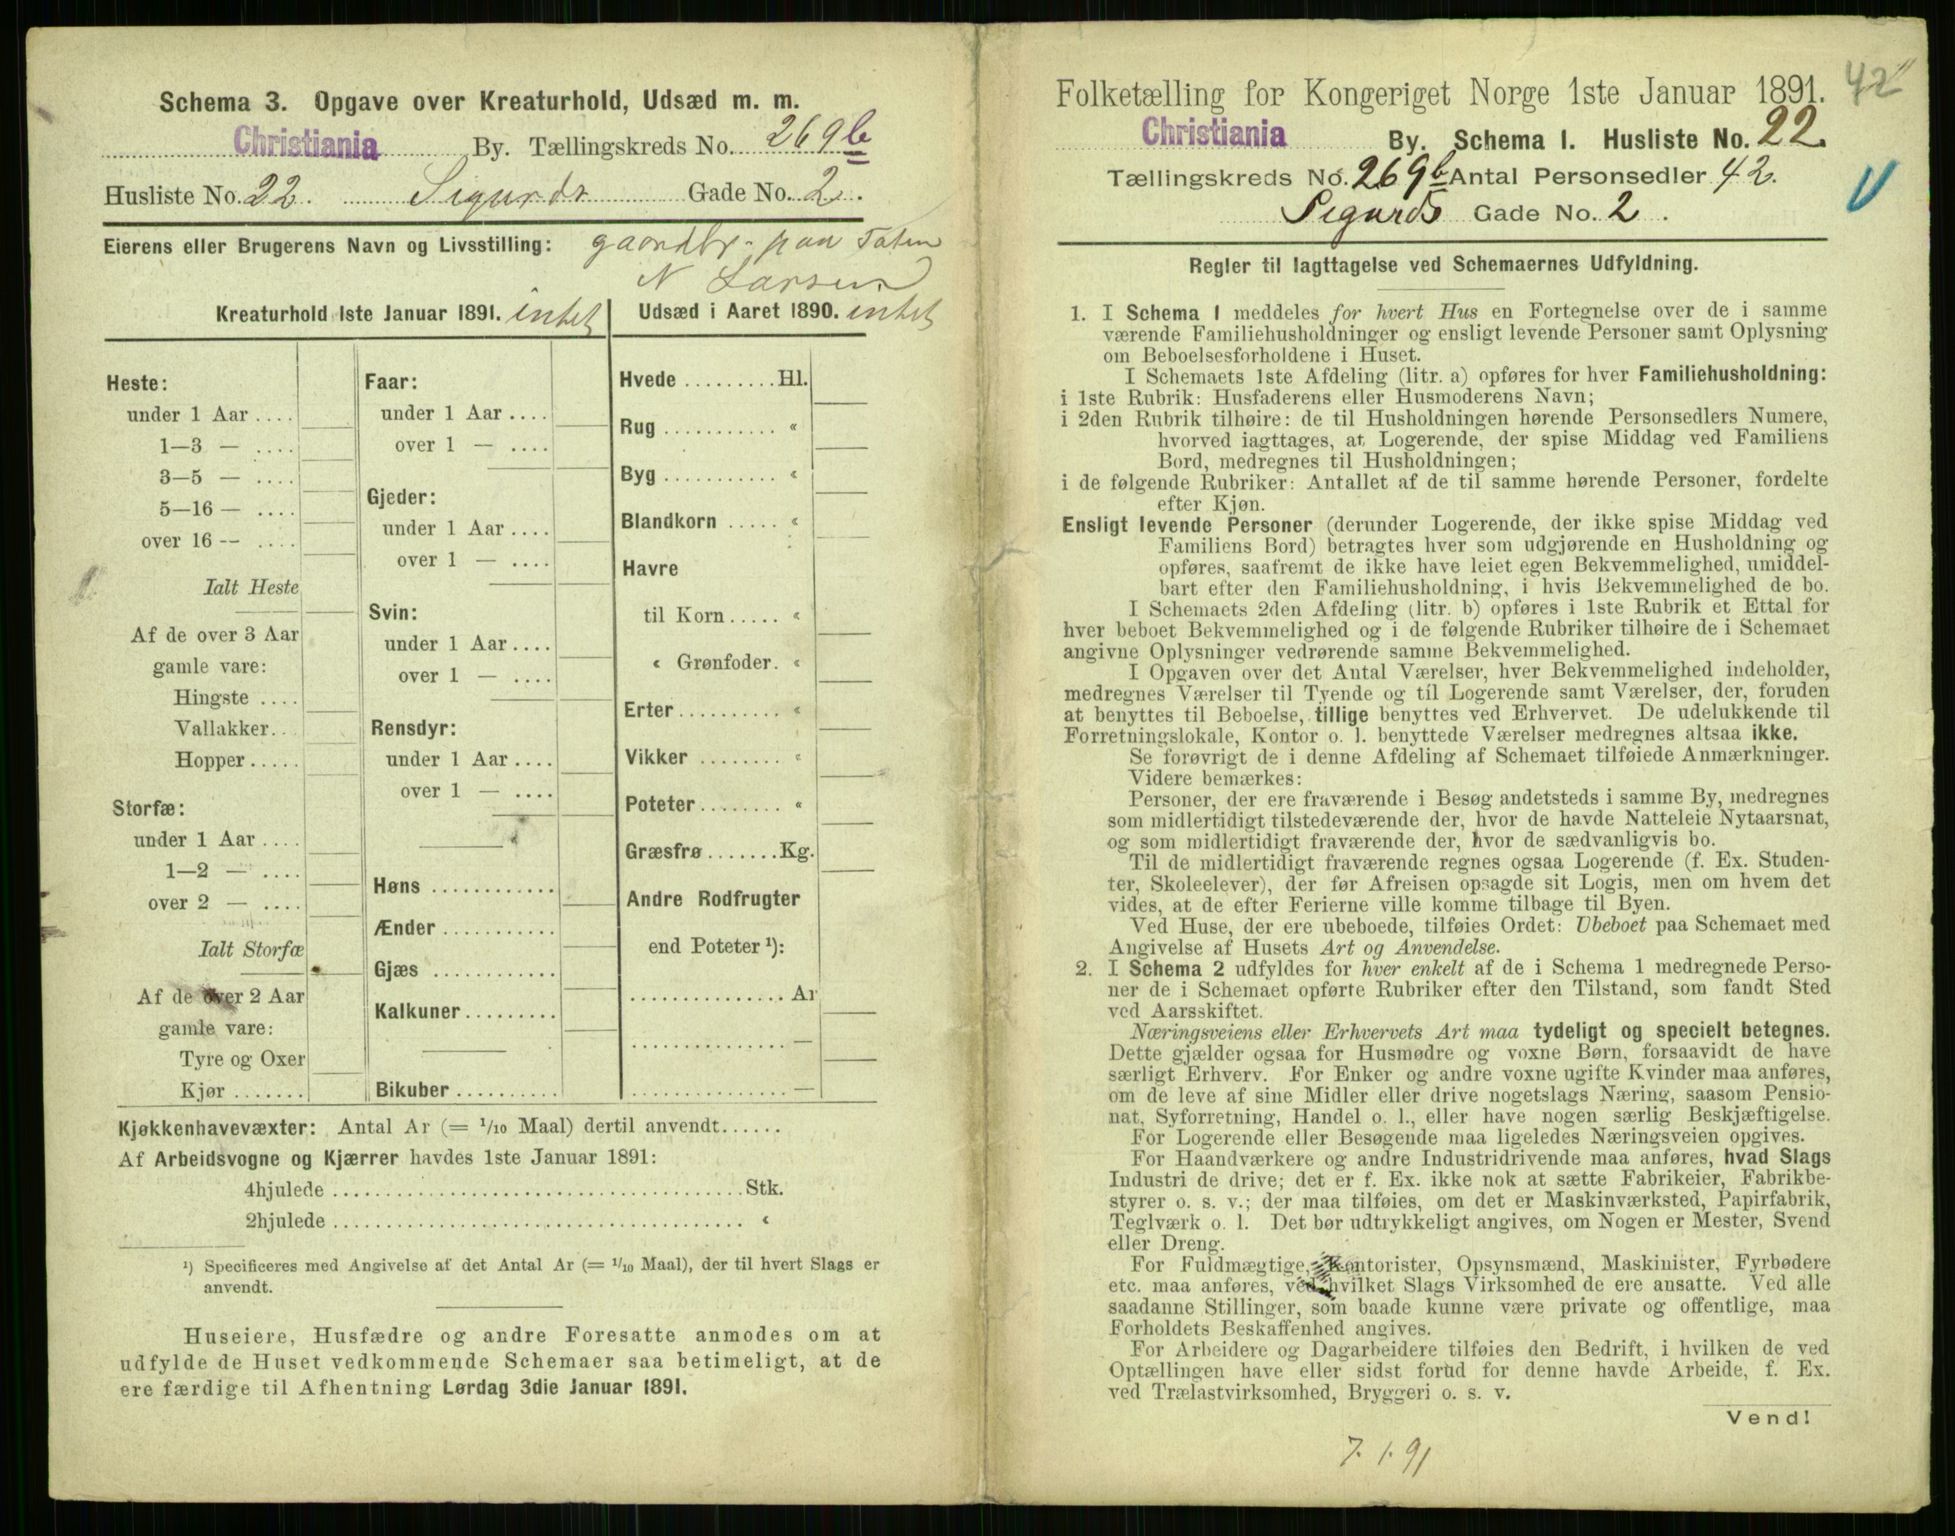 Schema 3. Opgave over Kreaturhold, Udsæd m. m.
Christiania By. Tællingskreds No. 269b
Husliste No. 22. Sigurds Gade No. 2.
Eierens eller Brugerens Navn og Livsstilling: gaardbr. paa Toten
N Larsen
Kreaturhold 1ste Januar 1891. intet
Heste:
under 1 Aar ....
1—3 — ....
3—5 — ....
5—16 — ....
over 16 -- ....
Ialt Heste
Af de over 3 Aar
gamle vare:
Hingste ....
Vallakker...
Hopper.....
Storfæ:
under 1 Aar ....
1—2 — ....
over 2 — ....
Ialt Storfæ
Af de over 2 Aar
gamle vare:
Tyre og Oxer
Kjør .......
Faar:
under 1 Aar ....
over 1 — ....
Gjeder:
under 1 Aar ....
over 1 — ....
Svin:
under 1 Aar ....
over 1 — ....
Rensdyr:
under 1 Aar ....
over 1 — ....
Høns ............
Ænder ...........
Gjæs ............
Kalkuner.........
Bikuber ..........
Udsæd i Aaret 1890. intet
Hvede .........Hl.
Rug ........... «
Byg ........... «
Blandkorn ..... «
Havre
til Korn ..... «
« Grønfoder. «
Erter.......... «
Vikker ........ «
Poteter........ «
Græsfrø .......Kg.
Andre Rodfrugter
end Poteter ¹):
............... Ar
............... —
............... —
Kjøkkenhavevæxter: Antal Ar (= 1/10 Maal) dertil anvendt......
Af Arbeidsvogne og Kjærrer havdes 1ste Januar 1891:
4hjulede .......................................Stk.
2hjulede ....................................... «
¹) Specificeres med Angivelse af det Antal Ar (= 1/10 Maal), der til hvert Slags er
anvendt.
Huseiere, Husfædre og andre Foresatte anmodes om at
udfylde de Huset vedkommende Schemaer saa betimeligt, at de
ere færdige til Afhentning Lørdag 3die Januar 1891.
Folketælling for Kongeriget Norge 1ste Januar 1891. 42
Christiania By. Schema 1. Husliste No. 22.
Tællingskreds No. 269b Antal Personsedler 42.
Sigurds Gade No. 2.
Regler til Iagttagelse ved Schemaernes Udfyldning.
1. I Schema 1 meddeles for hvert Hus en Fortegnelse over de i samme
værende Familiehusholdninger og ensligt levende Personer samt Oplysning
om Beboelsesforholdene i Huset.
I Schemaets 1ste Afdeling (litr. a) opføres for hver Familiehusholdning:
i 1ste Rubrik: Husfaderens eller Husmoderens Navn;
i 2den Rubrik tilhøire: de til Husholdningen hørende Personsedlers Numere,
hvorved iagttages, at Logerende, der spise Middag ved Familiens
Bord, medregnes til Husholdningen;
i de følgende Rubriker: Antallet af de til samme hørende Personer, fordelte
efter Kjøn.
Ensligt levende Personer (derunder Logerende, der ikke spise Middag ved
Familiens Bord) betragtes hver som udgjørende en Husholdning og
opføres, saafremt de ikke have leiet egen Bekvemmelighed, umiddel-
bart efter den Familiehusholdning, i hvis Bekvemmelighed de bo.
I Schemaets 2den Afdeling (litr. b) opføres i 1ste Rubrik et Ettal for
hver beboet Bekvemmelighed og i de følgende Rubriker tilhøire de i Schemaet
angivne Oplysninger vedrørende samme Bekvemmelighed.
I Opgaven over det Antal Værelser, hver Bekvemmelighed indeholder,
medregnes Værelser til Tyende og til Logerende samt Værelser, der, foruden
at benyttes til Beboelse, tillige benyttes ved Erhvervet. De udelukkende til
Forretningslokale, Kontor o. l. benyttede Værelser medregnes altsaa ikke.
Se forøvrigt de i denne Afdeling af Schemaet tilføiede Anmærkninger.
Videre bemærkes:
Personer, der ere fraværende i Besøg andetsteds i samme By, medregnes
som midlertidigt tilstedeværende der, hvor de havde Natteleie Nytaarsnat,
og som midlertidigt fraværende der, hvor de sædvanligvis bo.
Til de midlertidigt fraværende regnes ogsaa Logerende (f. Ex. Studen-
ter, Skoleelever), der før Afreisen opsagde sit Logis, men om hvem det
vides, at de efter Ferierne ville komme tilbage til Byen.
Ved Huse, der ere ubeboede, tilføies Ordet: Ubeboet paa Schemaet med
Angivelse af Husets Art og Anvendelse.
2. I Schema 2 udfyldes for hver enkelt af de i Schema 1 medregnede Perso-
ner de i Schemaet opførte Rubriker efter den Tilstand, som fandt Sted
ved Aarsskiftet.
Næringsveiens eller Erhvervets Art maa tydeligt og specielt betegnes.
Dette gjælder ogsaa for Husmødre og voxne Børn, forsaavidt de have
særligt Erhverv. For Enker og andre voxne ugifte Kvinder maa anføres,
om de leve af sine Midler eller drive nogetslags Næring, saasom Pensio-
nat, Syforretning, Handel o. l., eller have nogen særlig Beskjæftigelse.
For Logerende eller Besøgende maa ligeledes Næringsveien opgives.
For Haandværkere og andre Industridrivende maa anføres, hvad Slags
Industri de drive; det er f. Ex. ikke nok at sætte Fabrikeier, Fabrikbe-
styrer o. s. v.; der maa tilføies, om det er Maskinværksted, Papirfabrik,
Teglværk o. l. Det bør udtrykkeligt angives, om Nogen er Mester, Svend
eller Dreng.
For Fuldmægtige, Kontorister, Opsynsmænd, Maskinister, Fyrbødere
etc. maa anføres, ved hvilket Slags Virksomhed de ere ansatte. Ved alle
saadanne Stillinger, som baade kunne være private og offentlige, maa
Forholdets Beskaffenhed angives.
For Arbeidere og Dagarbeidere tilføies den Bedrift, i hvilken de ved
Optællingen have eller sidst forud for denne havde Arbeide, f. Ex.
ved Trælastvirksomhed, Bryggeri o. s. v.
Vend!
7. 1. 91